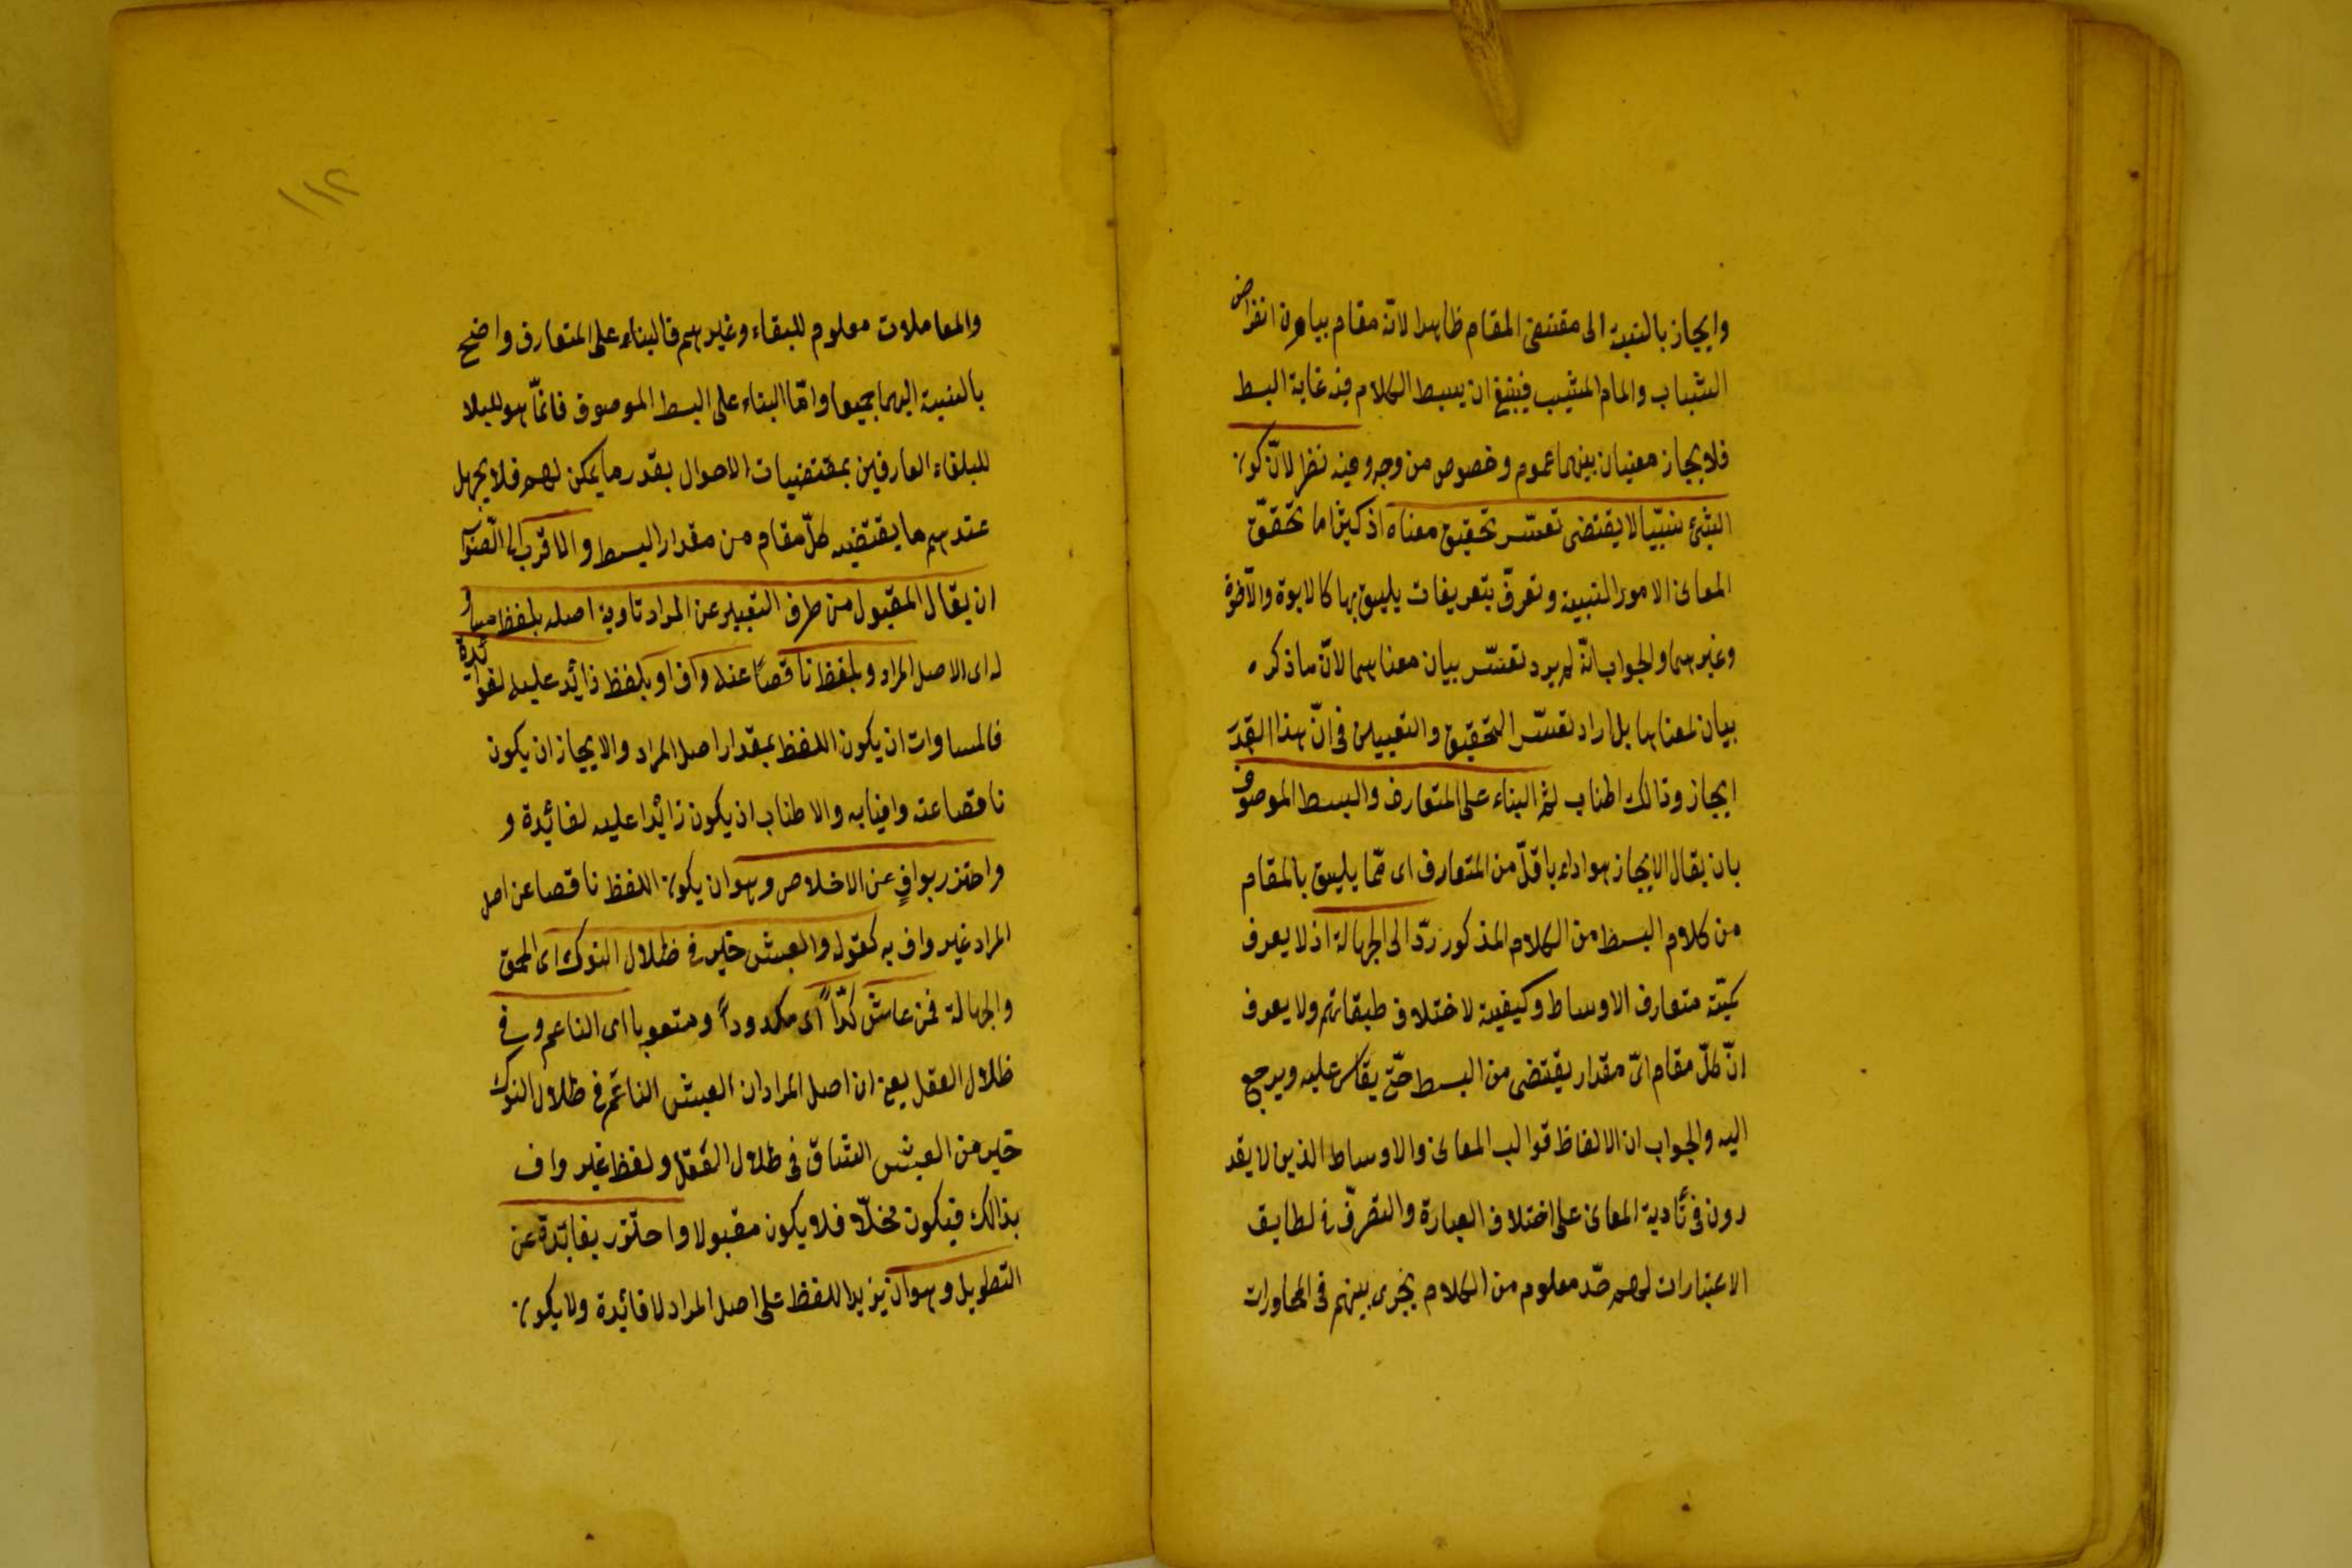 وايجاز بالنسبة الى مقتضى المقام ظاهرا لانه مقام بيان انقراض
الشباب والمام المشيب فينبغى ان يبسط الكلام فيه غاية البسط
فللايجاز معنيان بينهما عموم وخصوص من وجه وفيه نظر لانّ كون
الشئ نسبيّا لا يقتضى تعسّر تحقيق معناه اذ كثيرا ما تحقّق
المعانى الامور النسبية وتعرّف بتعريفات يليق بها كالابوة والاخوّة
وغيرهما والجواب انّه لم يرد تعسّر بيان معناهما لانّ ما ذكره
بيان لمعناهما بل اراد تعسّر التحقيق والتعيين فى انّ هذا القدر
ايجاز وذالك اطناب ثم البناء على المتعارف والبسط الموصوف
بان يقال الايجاز هو اداء باقلّ من المتعارف اى ممّا يليق بالمقام
من كلام البسط من الكلام المذكور ردّ الى الجهالة اذ لا يعرف
كميّة متعارف الاوساط وكيفية لاختلاف طبقاتهم ولا يعرف
انّ كلّ مقام اىّ مقدار يقتضى من البسط حتّى يقاس عليه ويرجع
اليه والجواب ان الالفاظ قوالب المعانى والاوساط الذين لا يقد
رون فى تأدية المعانى على اختلاف العبارة والتصرّف فى لطايف
الاعتبارات لهم حدّ معلوم من الكلام يجرى بينهم فى المحاورات
١١٢
والمعاملات معلوم للبقاء وغيرهم فالبناء على المتعارف واضح
بالنسبة اليهما جميعا وامّا البناء على البسط الموصوف فانّما هو للبلا
للبلغاء العارفين بمقتضيات الاحوال بقدر ما يمكن لهم فلا يجهل
عندهم ما يقتضيه كلّ مقام من مقدار البسط والاقرب الى الصّواب
ان يقال المقبول من طرف التعبير عن المراد تاوية اصله بلفظ مساو
له اى الاصل المراد وبلفظ ناقصاً عنه واف او بلفظ زائد عليه لفوائدة
فالمساوات ان يكون اللفظ بمقدار اصل المراد والايجاز ان يكون
ناقصا عنه وافيا به والاطناب ان يكون زائدا عليه لفائدة و
واحترز بوافٍ عن الاخلاص وهو ان يكون اللفظ ناقصا عن اصل
المراد غير واف به كقوله والعيش خير فى ظلال النوك اى الحمق
والجهالة ممن عاش كدّاً اى مكدوداً ومتعوبا اى الناعم وفى
ظلال العقل يعنى ان اصل المراد ان العيش الناعم فى ظلال النوك
خير من العيش الشاق فى ظلال العقل ولفظ غير واف
بذالك فيكون مخلّا فلا يكون مقبولا واحترز بفائدة عن
التطويل وهو ان يزيد اللفظ على اصل المراد لا فائدة ولا يكون